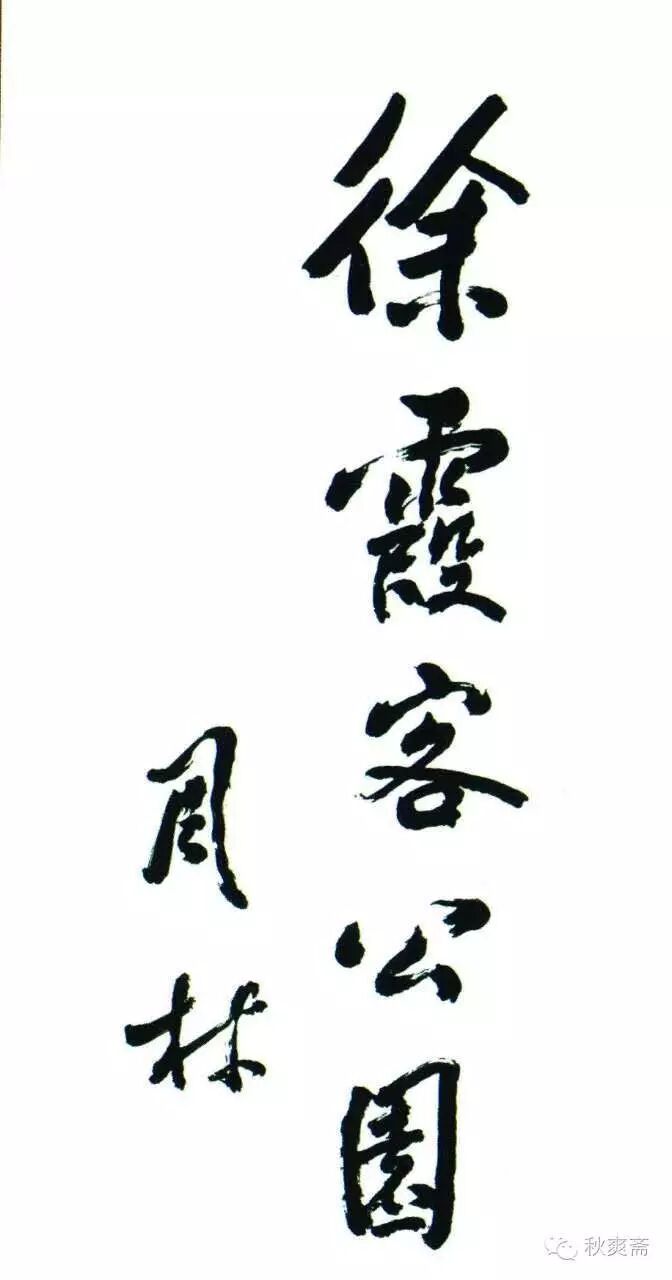 徐霞客公園
周林
秋爽斋